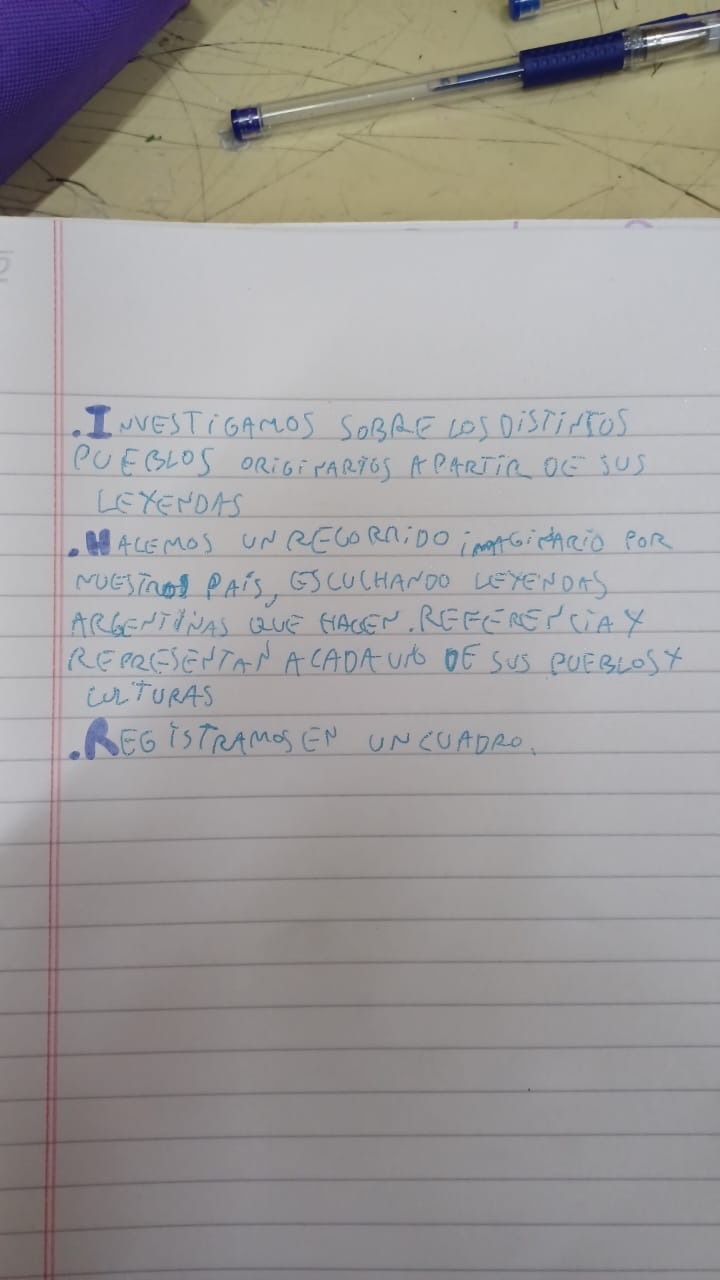 .INVESTIGAMOS SOBRE LOS DISTINTOS
PUEBLOS ORIGINARIOS A PARTIR DE SUS
LEYENDAS
.HACEMOS UN RECORRIDO IMAGINARIO POR
NUESTROS PAÍS, ESCUCHANDO LEYENDAS
ARGENTINAS QUE HACEN.REFERENCIA Y
REPRESENTAN A CADA UNO DE SUS PUEBLOS Y
CULTURAS
.REGISTRAMOS EN UN CUADRO.